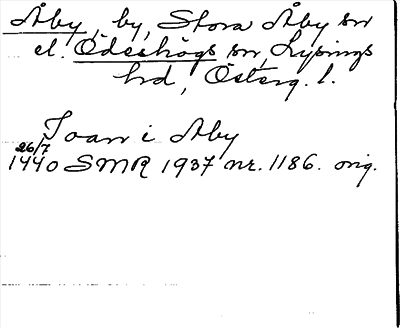 Åby, by, Stora Åby sn
el. Ödeshögs sn, Lysings
hd, Österg. l.
Joan i Aby
26/7
1440 SMR 1937 nr. 1186. orig.